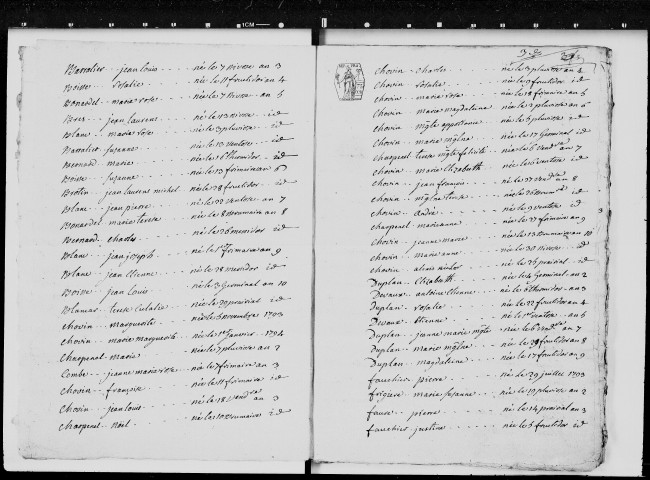 1CM
Barralier jean louis né le 7 nivose an 3
Boisse rosalie née le 11 fructidor an 4
Bonardel marie rose née le 7 nivose an 5
Bres jean laurent né le 13 nivose id
Blanc marie rose née le 3 pluviose id
Barralier suzanne née le 13 ventose id
Bernard marie née le 16 thermidor id
Boisse suzanne née le 13 frimaire an 6
Brotin jean laurent michel né le 28 fructidor id
Blanc jean pierre né le 22 ventose an 7
Bonardel marie terese née le 18 brumaire an 8
Bernard charles né le 26 messidor id
Blanc jean joseph né le 1er frimaire an 9
Blanc jean etienne né le 18 messidor id
Boisse jean louis né le 3 germinal an 10
Blamar terese eulalie née le 20 prairial id
Chovin marguerite née le 5 novembre 1793
Chovin marie marguerite née le 1er janvier 1794
Charpenel marie née le 7 pluviose an 2
Combe jeanne marie rose née le 7 frimaire an 3
Chovin françoise née le 11 frimaire id
Chovin jean louis né le 18 vend.re an 3
Charpenel noël né le 10 brumaire id
Chovin charles né le 3 pluviose an 4
Chovin rosalie née le 9 fructidor id
Chovin marie rose née le 18 frimaire an 5
Chovin marie magdelaine née le 2 pluviose an 6
Chovin mgte apportonie née le 6 pluviose id
Chovin marie mgtine née le 17 germinal id
Charpenel terese mgte felicité née le 6 vend.re an 7
Chovin marie Elizabeth née le 1 ventose id
Chovin jean françois né le 22 vend.re an 8
Chovin mgtine terese née le 26 brum.re id
Chovin andré né le 9 ventose id
Charpenel marieanne née le 27 frimaire an 9
Chovin jeanne marie née le 13 brumaire an 10
Chovin marie anne née le 30 nivose id
Chovin alexis victor né le 26 prairial id
Duplan Elizabeth née le 4 germinal an 2
Devaux antoine etienne né le 18 thermidor an 3
Duplan rosalie née le 22 fructidor an 4
Devaux Etienne né le 1er ventose an 6
Duplan jeanne marie mgte née le 6 vend.re an 7
Duplan marie mgtine née le 29 fructidor an 8
Duplan magdelaine née le 17 fructidor an 9
fauchier pierre né le 29 juillet 1793
frigiere marie suzanne née le 19 pluviose an 2
faure pierre né le 14 prairial an 3
fauchier justine née le 6 fructidor id